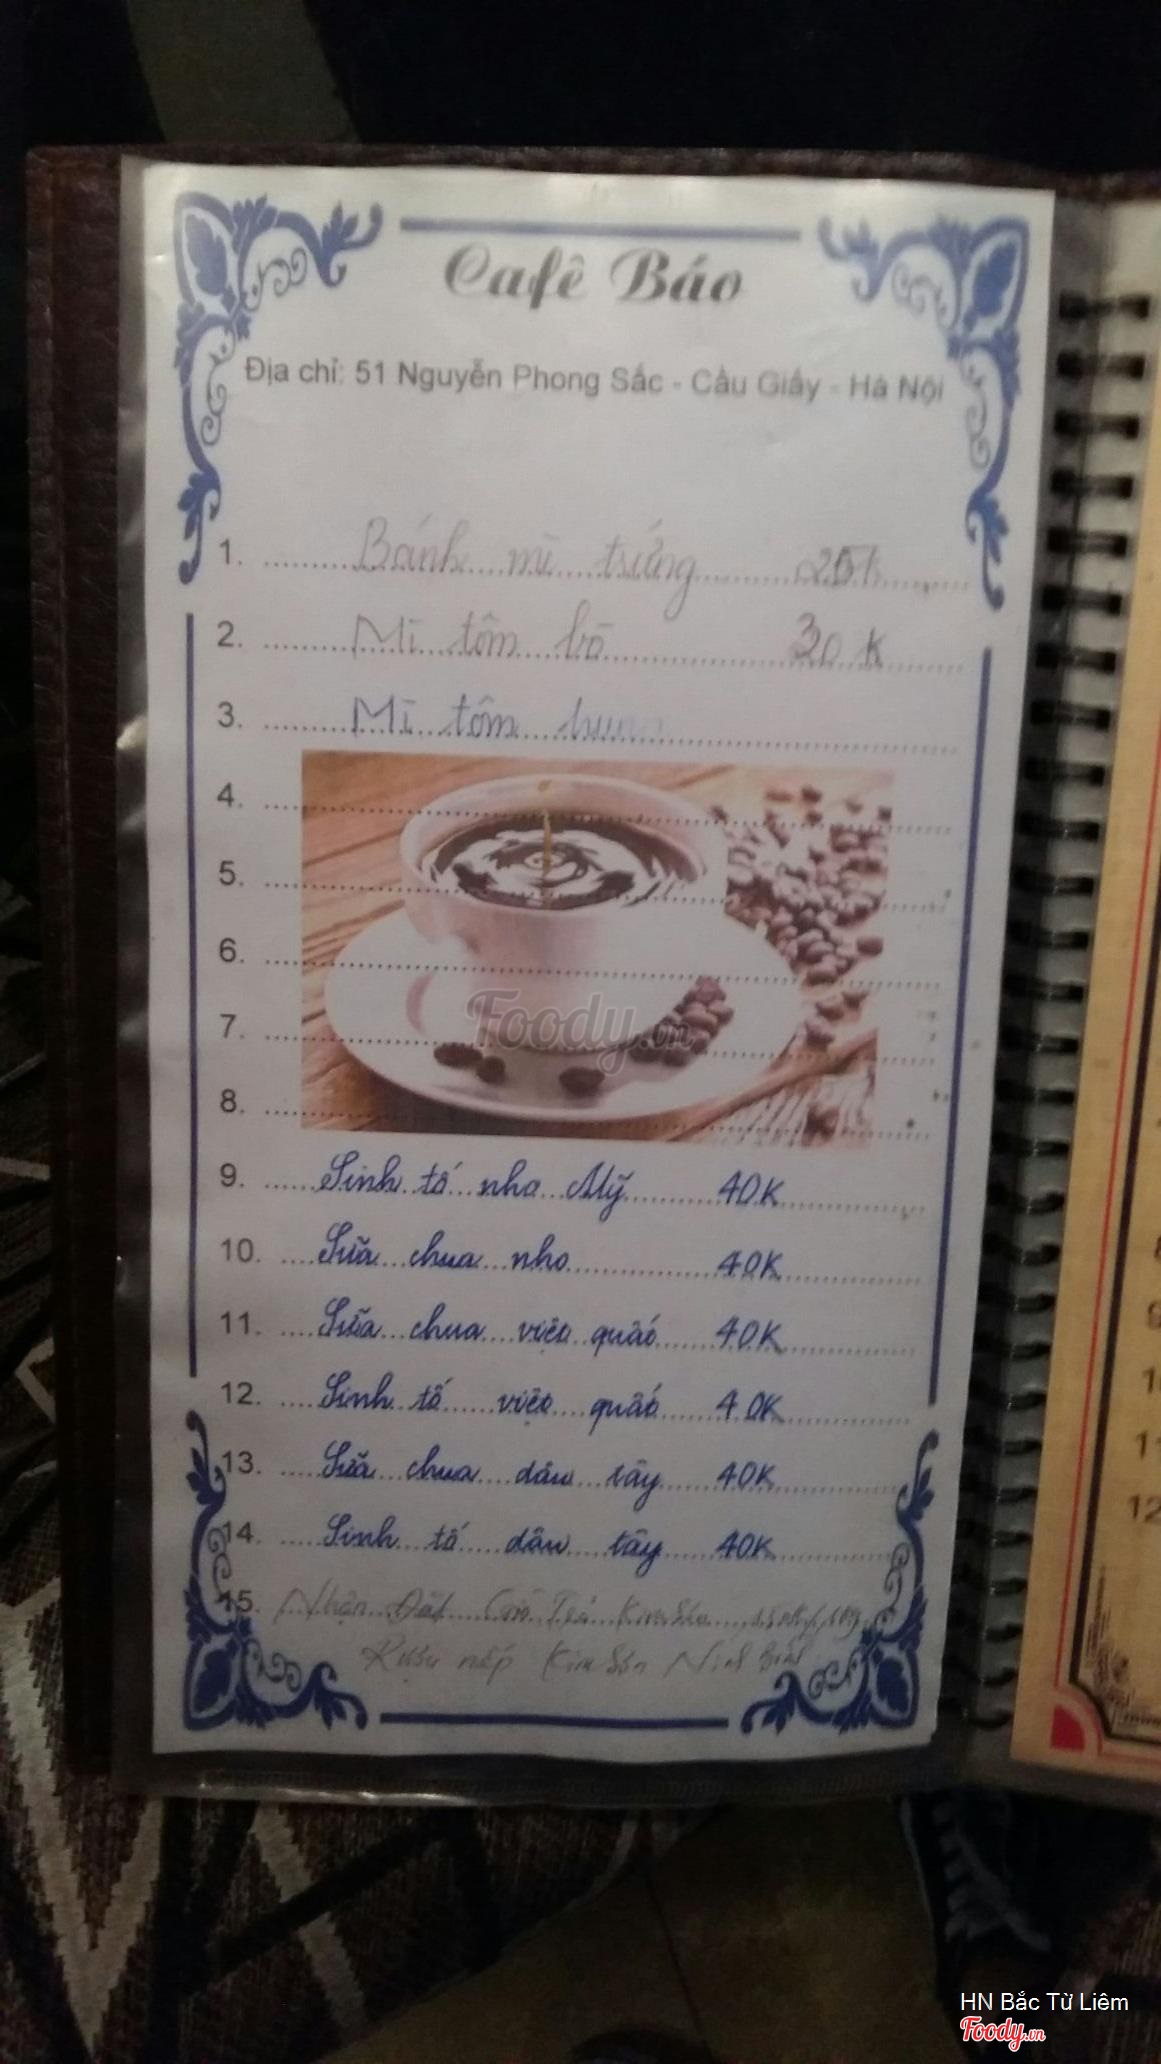 Cafê Báo
Địa chỉ: 51 Nguyễn Phong Sắc - Cầu Giấy - Hà Nội
1. Bánh mì trứng
2. Mì tôm bò 30 K
3. Mì tôm
4.
5.
6.
Foody.vn
7.
8.
9. Sinh tố nho Mỹ 40K
10. Sữa chua nho 40K
11. Sữa chua việo quấó 40K
12. Sinh tố việo quấó 40K
13. Sữa chua dâu tây 40K
14. Sinh tố dâu tây 40K
15. Nhận Đặt
Rượu nếp Kim Sơn Ninh Bình
8
9
10
11
12
HN Bắc Từ Liêm
Foody.vn